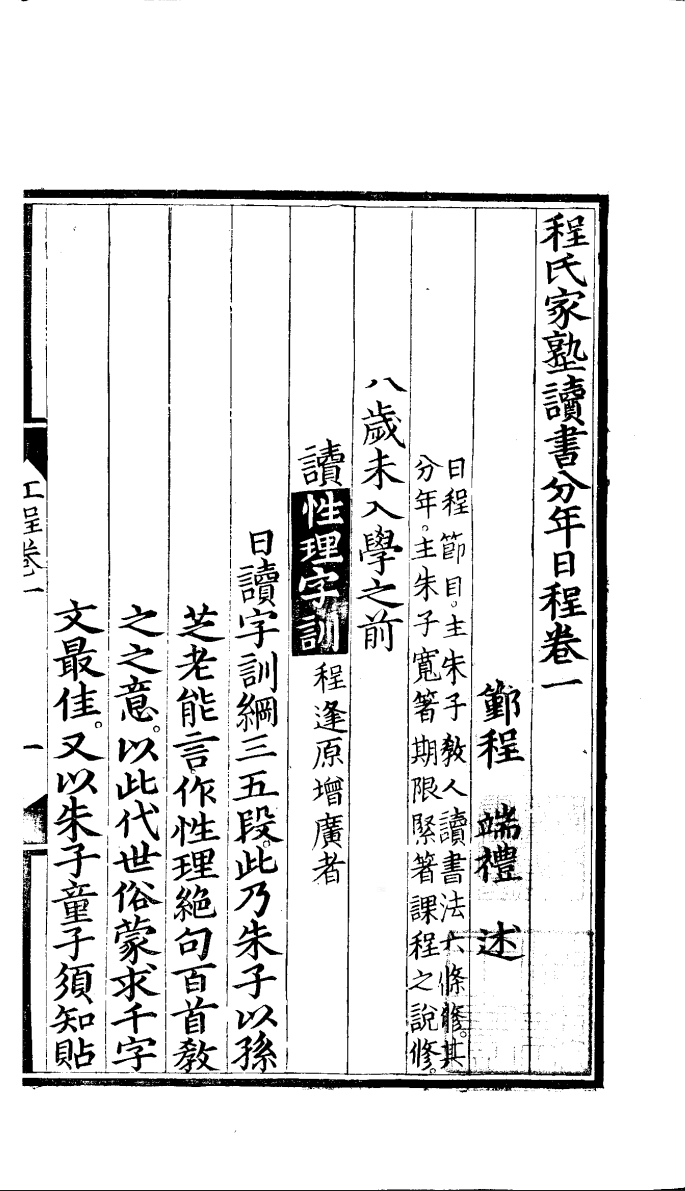 程氏家塾讀書分年日程卷一
鄞程 端禮 述
日程節目。主朱子教人讀書法六條修。其
分年。主朱子寬著期限緊著課程之說修。
八歲未入學之前
讀性理字訓程逢原增廣者
日讀字訓綱三五段。此乃朱子以孫
芝老能言。作性理絕句百首教
之之意。以此代世俗蒙求千字
文最佳。又以朱子童子須知貼
工程卷一
一